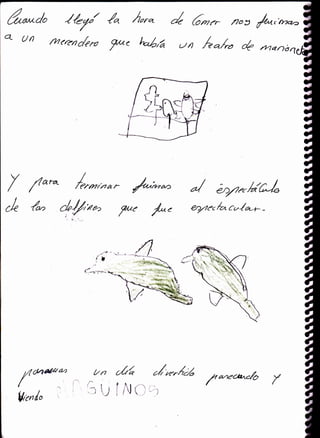 Cuando llegó la hora de Comer nos fuimos
a un merendero que había un teatro de marionetas
Y para terminar fuimos al espectáculo
de los delfines que fue espectacular.
pasamos un día divertido paseando y
Viendo PINGÜINOS